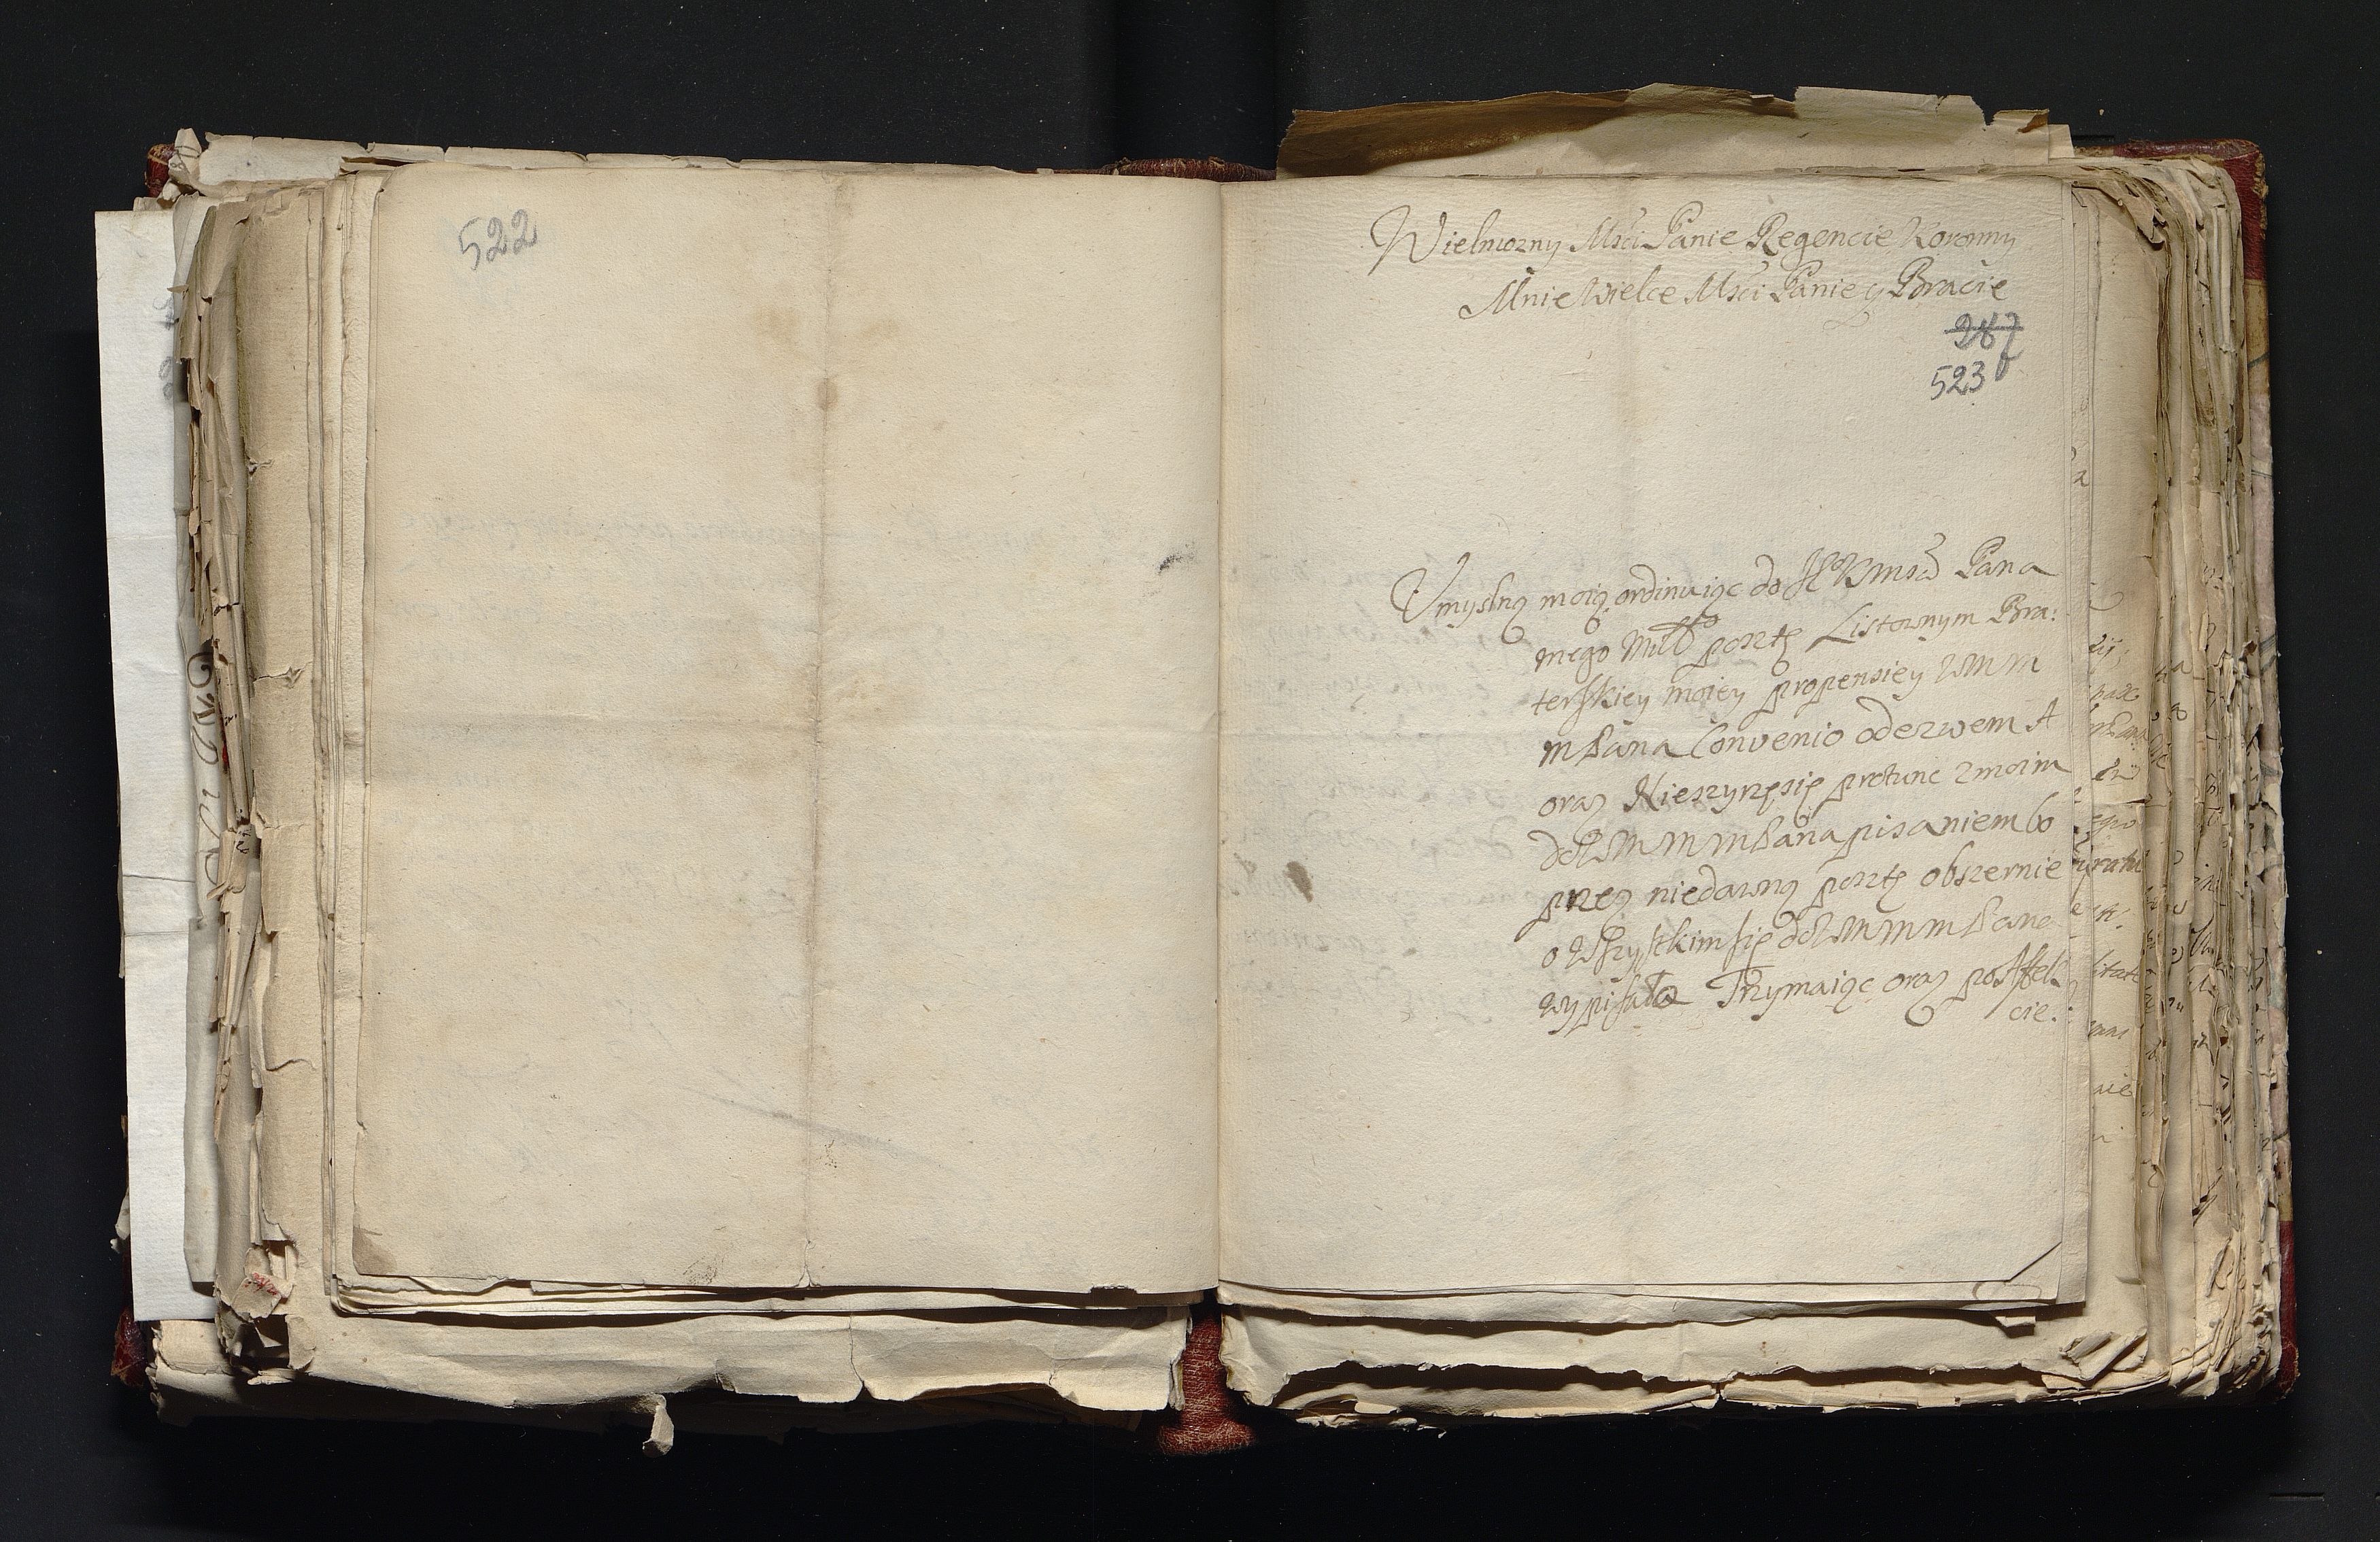 522
Wielmozny Msci Panie Regencie Koronny
Mnie Wielce Msci Panie y Bracie
287
523
Vmyslną moią ordinuiąc do Pana
mego posztę Listownym Bra:
terskiey moiey propensiey WM M
m Pana Convenio odezwem A
oraz Nieszyrzęsię protunc zmoim
do WM M m Pana pisaniem bo
przez niedawną posztę obszernie
o Wszystkim się do WM M m Pana
wypisała Trzymaiąc oraz po Affek
cie.